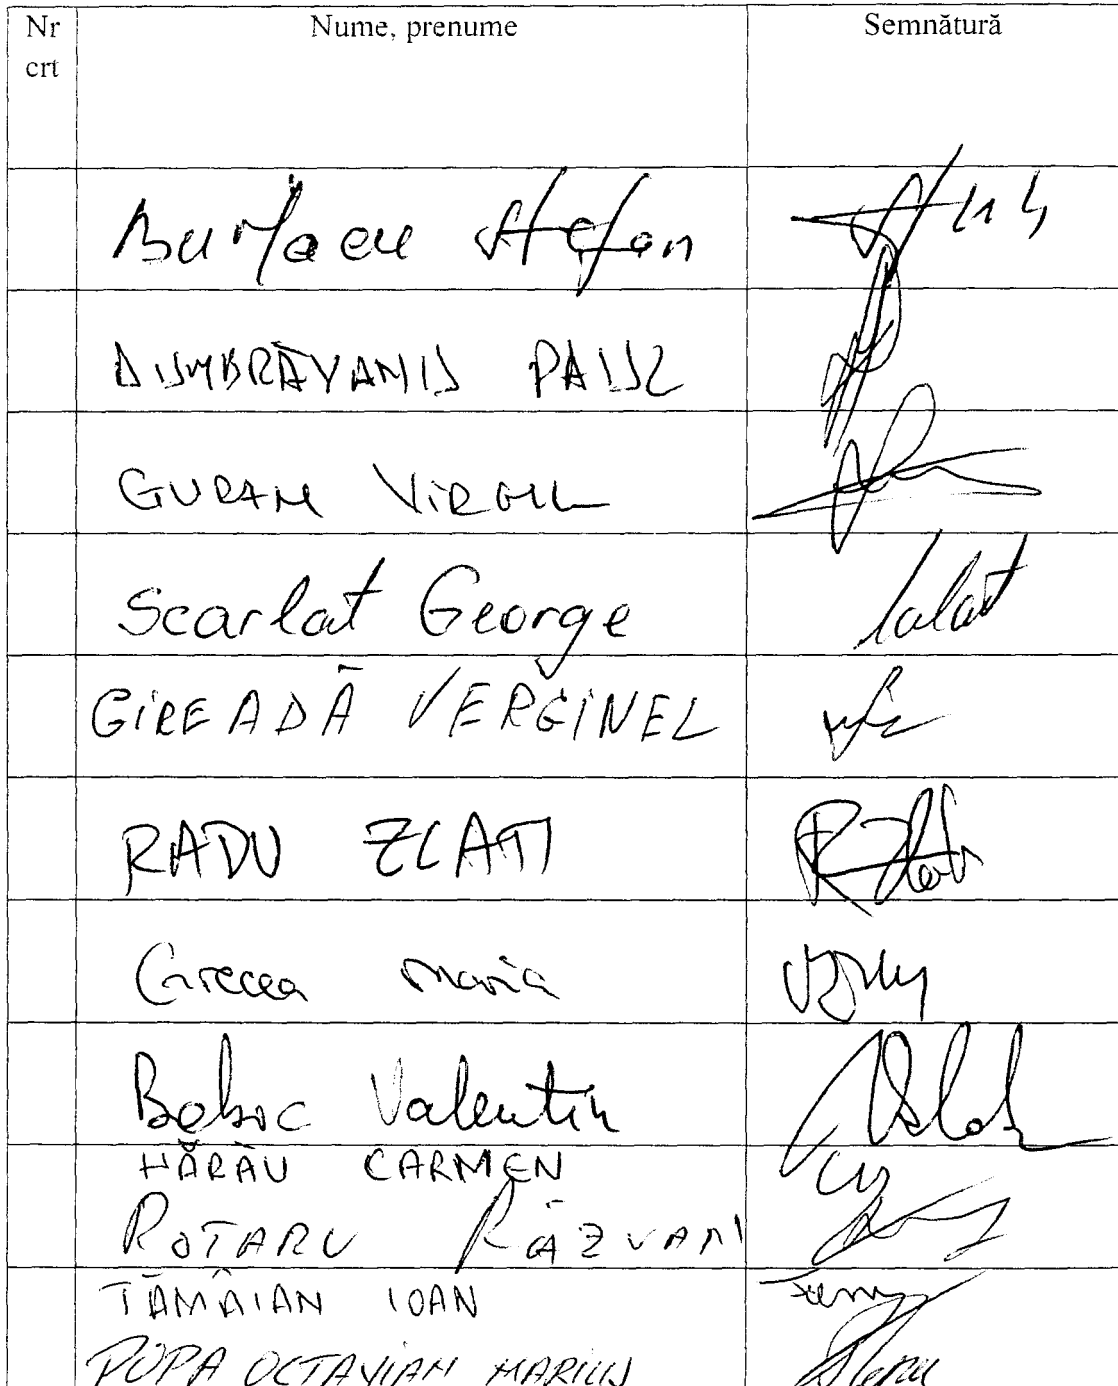 Nr crt Nume, prenume Semnătură
Burlacu Ștefan
DUMBRĂVANU PAUL
GURAN VIRGIL
Scarlat George
GIREADĂ VERGINEL
RADU ZLATI
Grecea Maria
Boboc Valentin
HĂRĂU CARMEN
ROTARU RĂZVAN
TĂMÂIAN IOAN
POPA OCTAVIAN MARIUS